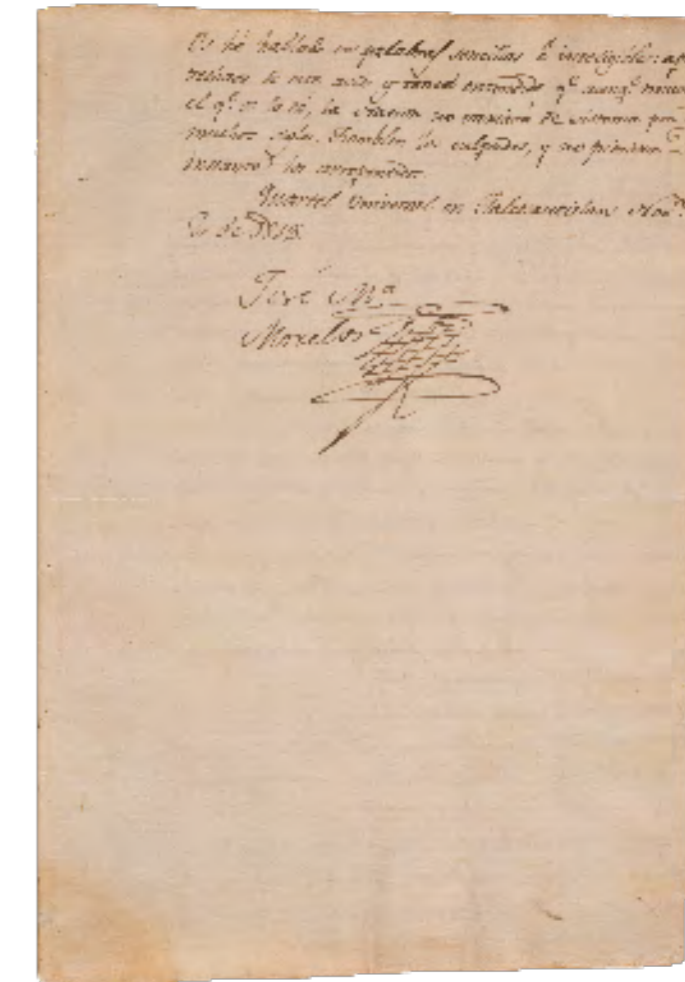 Os hé hablado en palabras sencillas é inteligibles: ap
vechaos de este aviso y tened entendido qᵉ aunqᵉ muera
el qᵉ os lo dá, la no variará de sistema por
muchos siglos. Tiemblen los culpados, y no pierdan
instantes los arrepentidos.
Quartel Universal en Tlalcosautitlan Novᵉ
2 de 1813.
José Mᵃ
Morelos